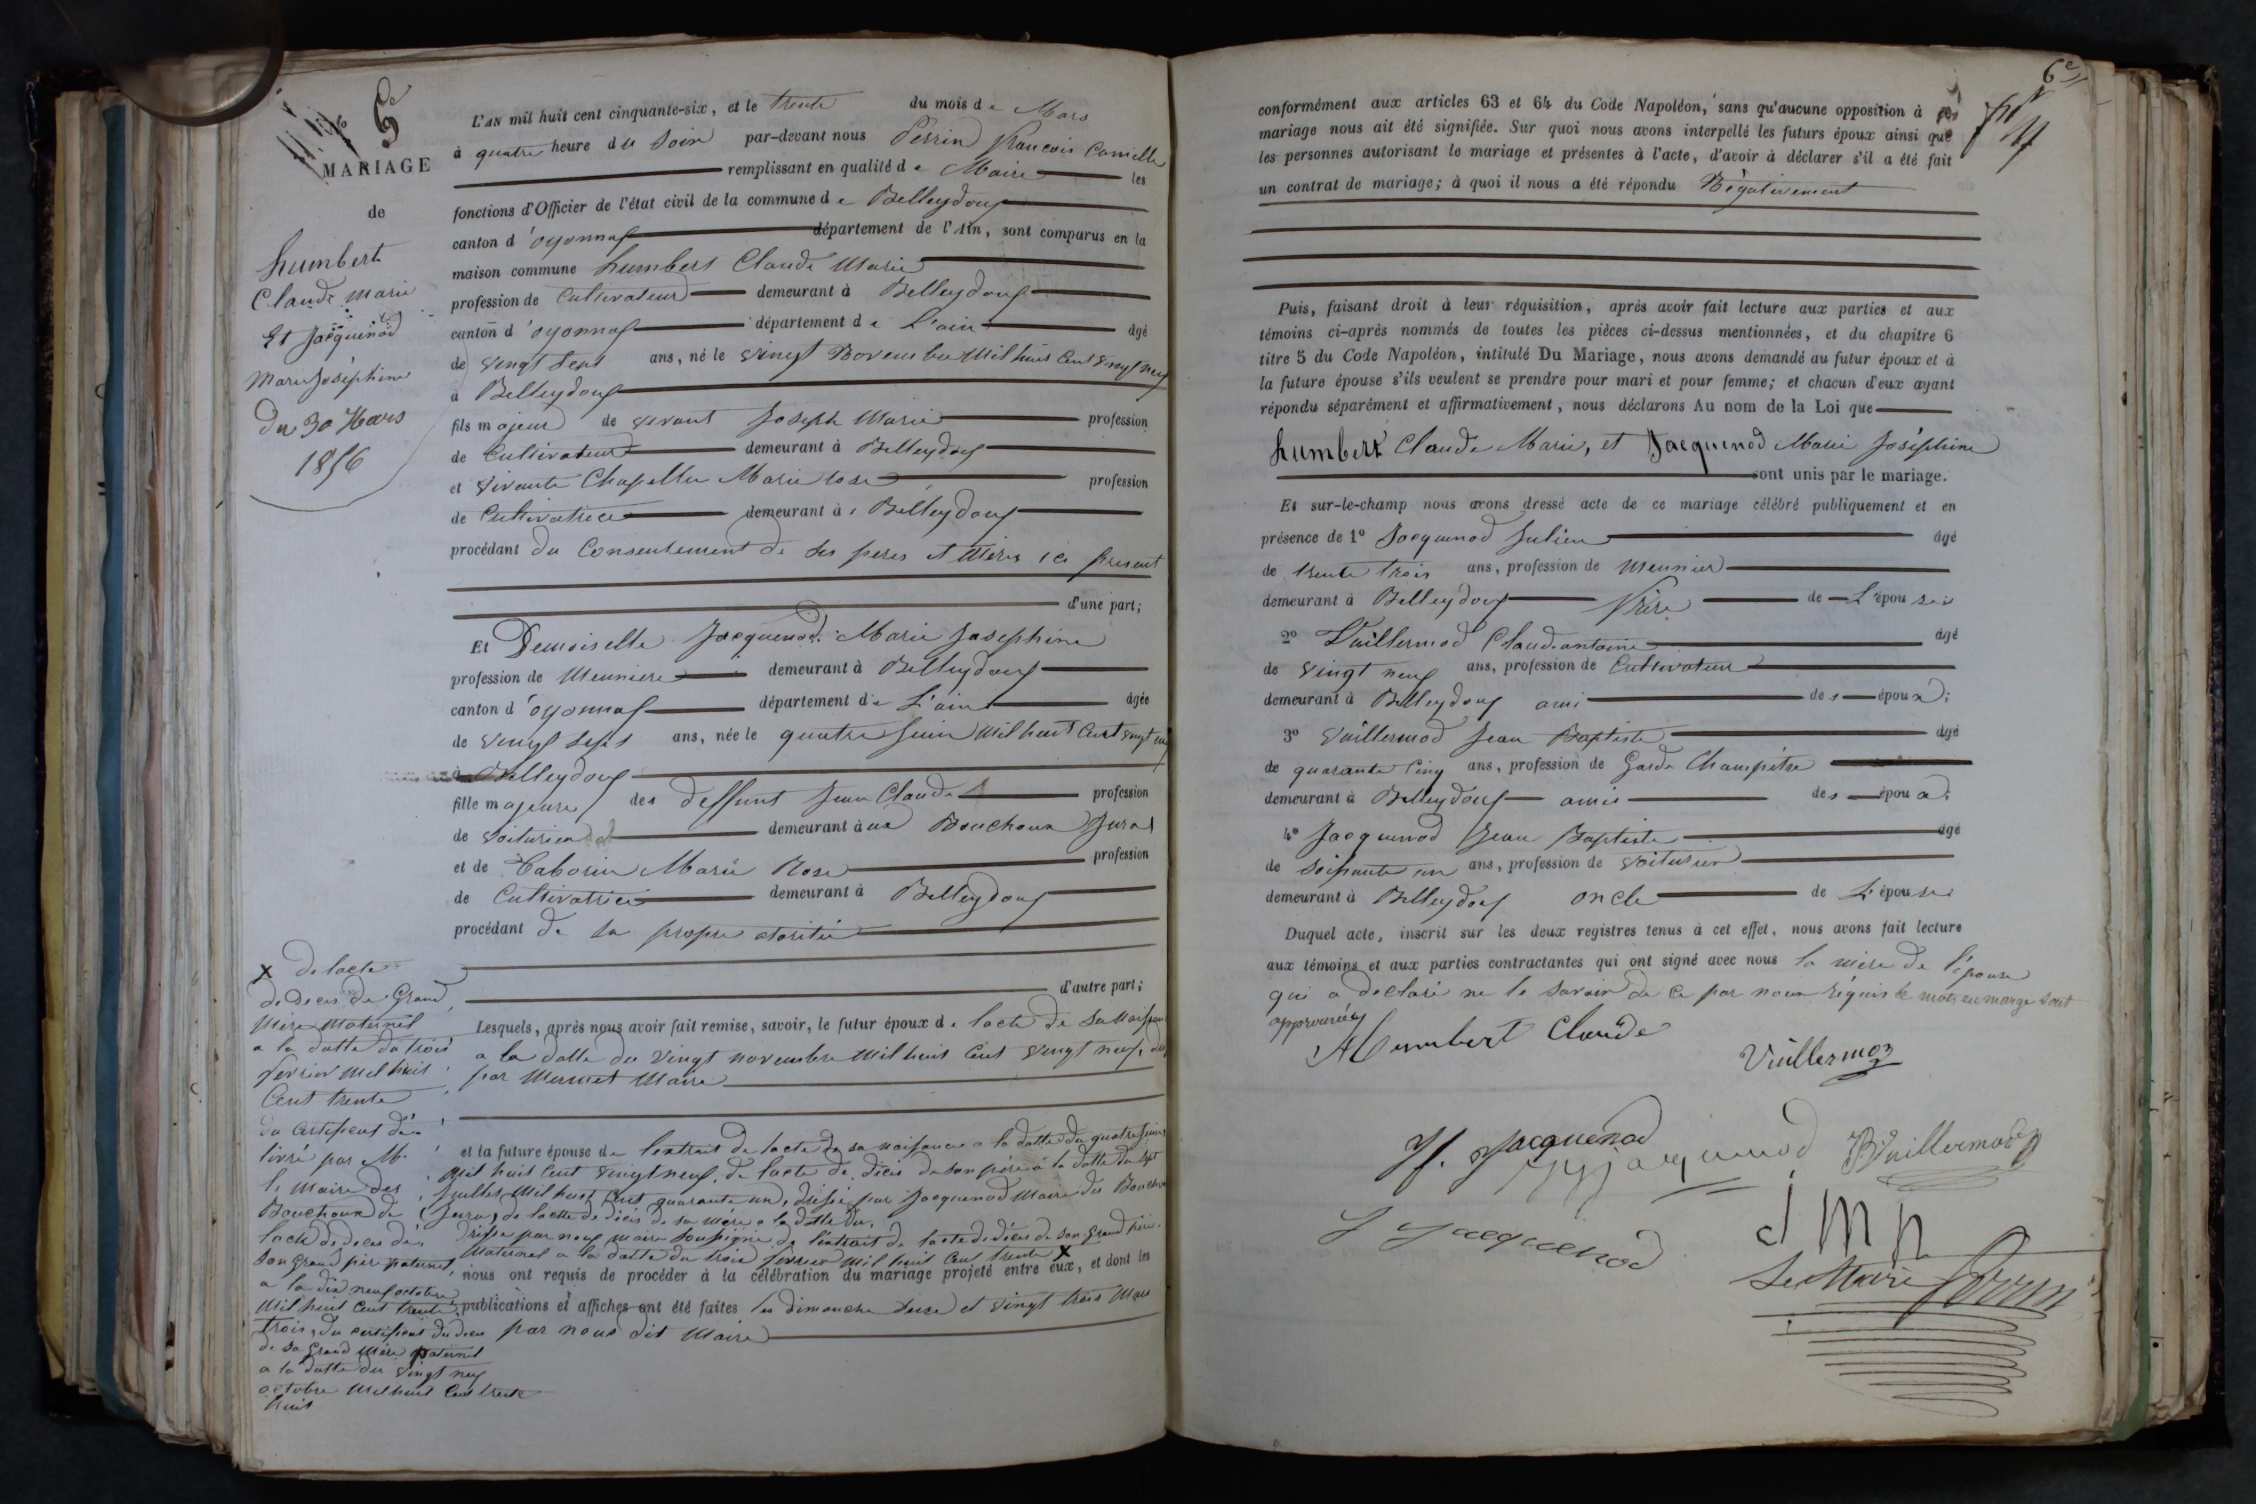 6e
MARIAGE
de
humbert
Claude Marie
Et Jacquenod
Marie Joséphine
Du 30 Mars
1856
L'AN mil huit cent cinquante-six, et le trente du mois de Mars
à quatre heure du Soir par-devant nous Perrin François Camille
remplissant en qualité de Maire les
fonctions d'Officier de l'état civil de la commune de Belleydoux
canton d'oyonnax département de l'Ain, sont comparus en la
maison commune humbert Claude Marie
profession de Cultivateur demeurant à Belleydoux
canton d'oyonnax département de L'ain âgé
de vingt Sept ans, né le vingt Novembre Mil huit Cent vingt neuf
à Belleydoux
fils majeur de vivant Joseph Marie profession
de Cultivateur demeurant à Belleydoux
et vivante Chapellu Marie rose profession
de Cultivatrice demeurant à Belleydoux
procédant du Consentement de ses peres et Mères ici present
d'une part;
Et Demoiselle Jacquenod Marie Josephine
profession de Meuniere demeurant à Belleydoux
canton d'oyonnax département de L'ain âgée
de vingt Sept ans, née le quatre Juin Mil huit Cent vingt neuf
à Belleydoux
fille majeure des deffunt Jean Claude profession
de voiturier demeurant à ux Bouchoux Jura
et de Caborin Marie Rose profession
de Cultivatrice demeurant à Belleydoux
procédant de sa propre otoritée
d'autre part;
Lesquels, après nous avoir fait remise, savoir, le futur époux de lacte de Sa naissance
a la datte du vingt novembre Mil huit Cent vingt neuf,
par Mermet Maire
et la future épouse de lextrait de lacte de sa naissance a la datte du quatre Juin
Mil huit Cent vingt neuf, de lacte de décès de son père à la datte du sept
Juillet Mil huit Cent quarante un, dressé par Jacquenod Maire des Bouchoux
(Jura) de lacte de décès de sa mère a la datte du,
dressé par nous maire Soussigné de lextrait de lacte de décès de Son grand père
Maternel a la datte du trois février Mil huit Cent trente X
nous ont requis de procéder à la célébration du mariage projeté entre eux, et dont les
publications et affiches ont été faites les dimanche Seize et vingt trois Mars
par nous dit Maire
X de lacte
de deces de Grand
Mère Maternel
a la datte du trois
fevrier Mil huit
Cent trente
du certificat dé
livré par Mr
le Maire des
Bouchoux de
lacte de deces de
Son grand père paternel
a la dix neuf octobre
Mil huit Cent trente
trois, du certificat du deces
de Sa Grand Mère paternel
a la datte du vingt neuf
octobre Mil huit Cent trente
huit
6e
conformément aux articles 63 et 64 du Code Napoléon, sans qu'aucune opposition à ce
mariage nous ait été signifiée. Sur quoi nous avons interpellé les futurs époux ainsi que
les personnes autorisant le mariage et présentes à l'acte, d'avoir à déclarer s'il a été fait
un contrat de mariage; à quoi il nous a été répondu Négativement
Puis, faisant droit à leur réquisition, après avoir fait lecture aux parties et aux
témoins ci-après nommés de toutes les pièces ci-dessus mentionnées, et du chapitre 6
titre 5 du Code Napoléon, intitulé Du Mariage, nous avons demandé au futur époux et à
la future épouse s'ils veulent se prendre pour mari et pour femme; et chacun d'eux ayant
répondu séparément et affirmativement, nous déclarons Au nom de la Loi que
humbert Claude Marie, et Jacquenod Marie Joséphine
sont unis par le mariage.
Et sur-le-champ nous avons dressé acte de ce mariage célébré publiquement et en
présence de 1º Jacquenod Julien âgé
de trente trois ans, profession de Meunier
demeurant à Belleydoux frère de L'épouse
2º Vuillermod Claudeantoine âgé
de vingt neuf ans, profession de Cultivateur
demeurant à Belleydoux ami des époux;
3º Vuillermod Jean Baptiste âgé
de quarante Cinq ans, profession de Garde Champêtre
demeurant à Belleydoux amis des époux;
4º Jacquenod Jean Baptiste âgé
de Soixante un ans, profession de voiturier
demeurant à Belleydoux oncle de L'épouse
Duquel acte, inscrit sur les deux registres tenus à cet effet, nous avons fait lecture
aux témoins et aux parties contractantes qui ont signé avec nous la mère de l'épouse
qui a declaré ne le Savoir de ce par nous réquis le mots en marge sont
approuvées
Humbert Claude
Vuillermoz
J. Jacquenod
jacquenod
B Vuillermoz
J Jacquenod
J M h
Le Maire Perrin